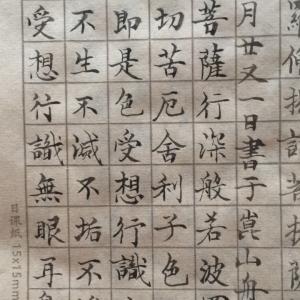 揭諦菩提薩
月廿又一日書于崑山舟
菩薩行深般若波
切苦厄舍利子色
即是色受想行識
不生不滅不垢不
受想行識無眼耳
日课纸 15x15mm